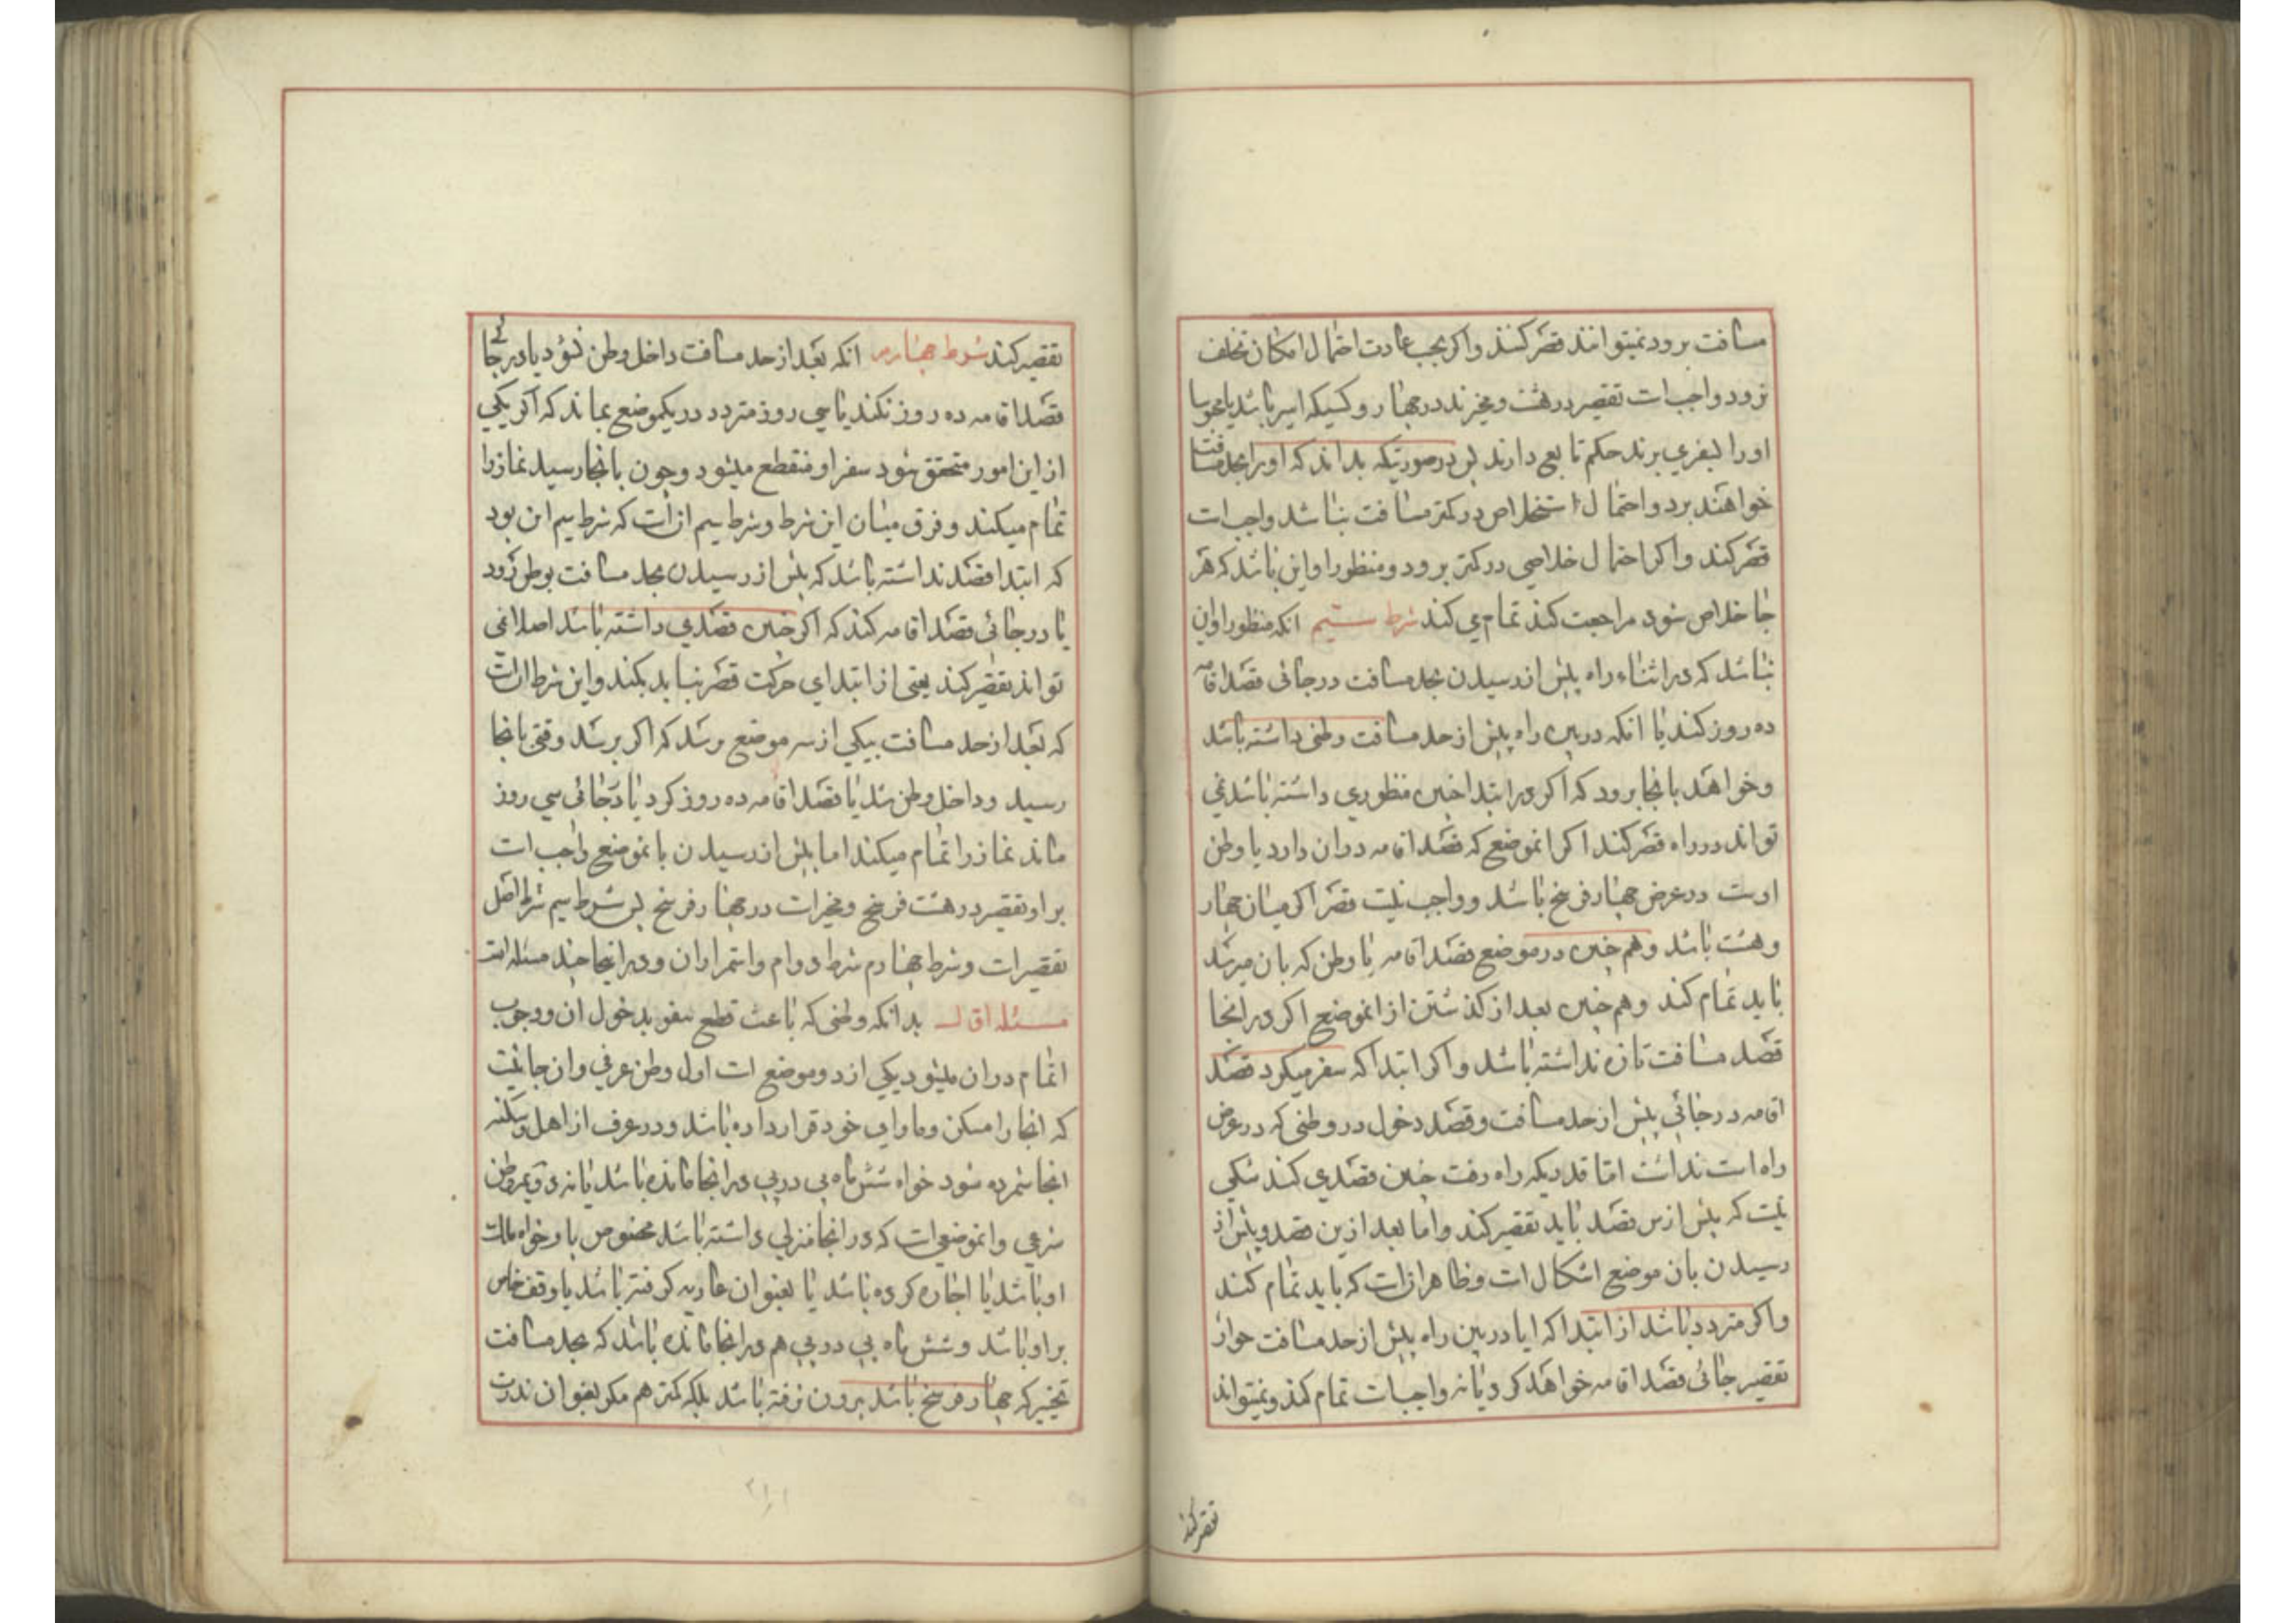 مسافت برود نمیتوانند قصر کنند و اکر بحسب عادت احتمال امکان تخلف
نرود واجب است تقصیر در هشت و مخیرند در چهار و کسیکه اسیر باشد یا محبوسا
او را بسفری برند حکم تابع دارند پس در صورتیکه بداند که او را بحد مسافت
خواهند برد و احتمال استخلاص در کمتر مسافت نباشد واجب است
قصر کند و اکر احتمال خلاصی در کمتر برود و منظور او این باشد که هر
جا خلاص شود مراجعت کند تمام می کند شرط سیم انکه منظور او این
نباشد که در اثناء راه پیش از رسیدن بحد مسافت در جائی قصد اقامه
ده روز کند یا انکه در بین راه پیش از حد مسافت وطنی داشته باشد
و خواهد بانجا برود که اکر در ابتدا چنین منظوری داشته باشد نمی
تواند در راه قصر کند اکر انموضع که قصد اقامه در ان دارد یا وطن
اوست در عرض چهار فرسخ باشد و واجب نیست قصر اکر میان چهار
و هشت باشد و هم چنین در موضع قصد اقامه یا وطن که بان میرسد
باید تمام کند و هم چنین بعد از کذشتن از انموضع اکر در انجا
قصد مسافت تازه نداشته باشد و اکر ابتدا که سفر میکرد قصد
اقامه در جائی پیش از حد مسافت و قصد دخول در وطنی که در عرض
راه است نداشت اما قدریکه راه رفت چنین قصدی کند شکی
نیست که پیش ازین قصد باید تقصیر کند و اما بعد ازین قصد و پیش از
رسیدن بان موضع اشکال است و ظاهر انست که باید تمام کند
و اکر متردد باشد از ابتدا که ایا در بین راه پیش از حد مسافت جواز
تقصیر جائی قصد اقامه خواهد کرد یا نه واجبست تمام کند و نمیتواند
تقصیر کند
تقصیر کند شرط چهارم انکه بعد از حد مسافت داخل وطن نشود یا در جائی
قصد اقامه ده روز نکند یا سی روز متردد در یکموضع بماند که اکر یکی
از این امور متحقق شود سفر او منقطع میشود و چون بانجا رسید نماز را
تمام میکند و فرق میان این شرط و شرط سیم انست که شرط سیم این بود
که ابتدا قصد نداشته باشد که پیش از رسیدن بحد مسافت بوطن رود
یا در جائی قصد اقامه کند که اکر چنین قصدی داشته باشد اصلا نمی
تواند تقصیر کند یعنی از ابتدای حرکت قصر نباید بکند و این شرط انست
که بعد از حد مسافت بیکی از سه موضع برسد که اکر برسد وقتی بانجا
رسید و داخل وطن شد یا قصد اقامه ده روز کرد یا در جائی سی روز
ماند نماز را تمام میکند اما پیش از رسیدن بانموضع واجب است
بر او تقصیر در هشت فرسخ و مخیر است در چهار فرسخ پس شرط سیم شرط اصل
تقصیر است و شرط چهارم شرط دوام و استمرار ان و در اینجا چند مسئله است
مسئله اول بدانکه وطنی که باعث قطع سفر بدخول ان و وجوب
اتمام در ان میشود یکی از دو موضع است اول وطن عرفی و ان جائیست
که انجا را مسکن و ماوای خود قرار داده باشد و در عرف از اهل و سکنه
انجا شمرده شود خواه شش ماه پی در پی در انجا مانده باشد یا نه دویم وطن
شرعی و انموضعی است که در انجا منزلی داشته باشد مخصوص باو خواه ملک
او باشد یا اجاره کرده باشد یا بعنوان عاریه کرفته باشد یا وقف خاص
بر او باشد و شش ماه پی در پی هم در انجا مانده باشد که بحد مسافت
تخییر که چهار فرسخ باشد بیرون نرفته باشد بلکه کمتر هم مکر بعنوان ندرت